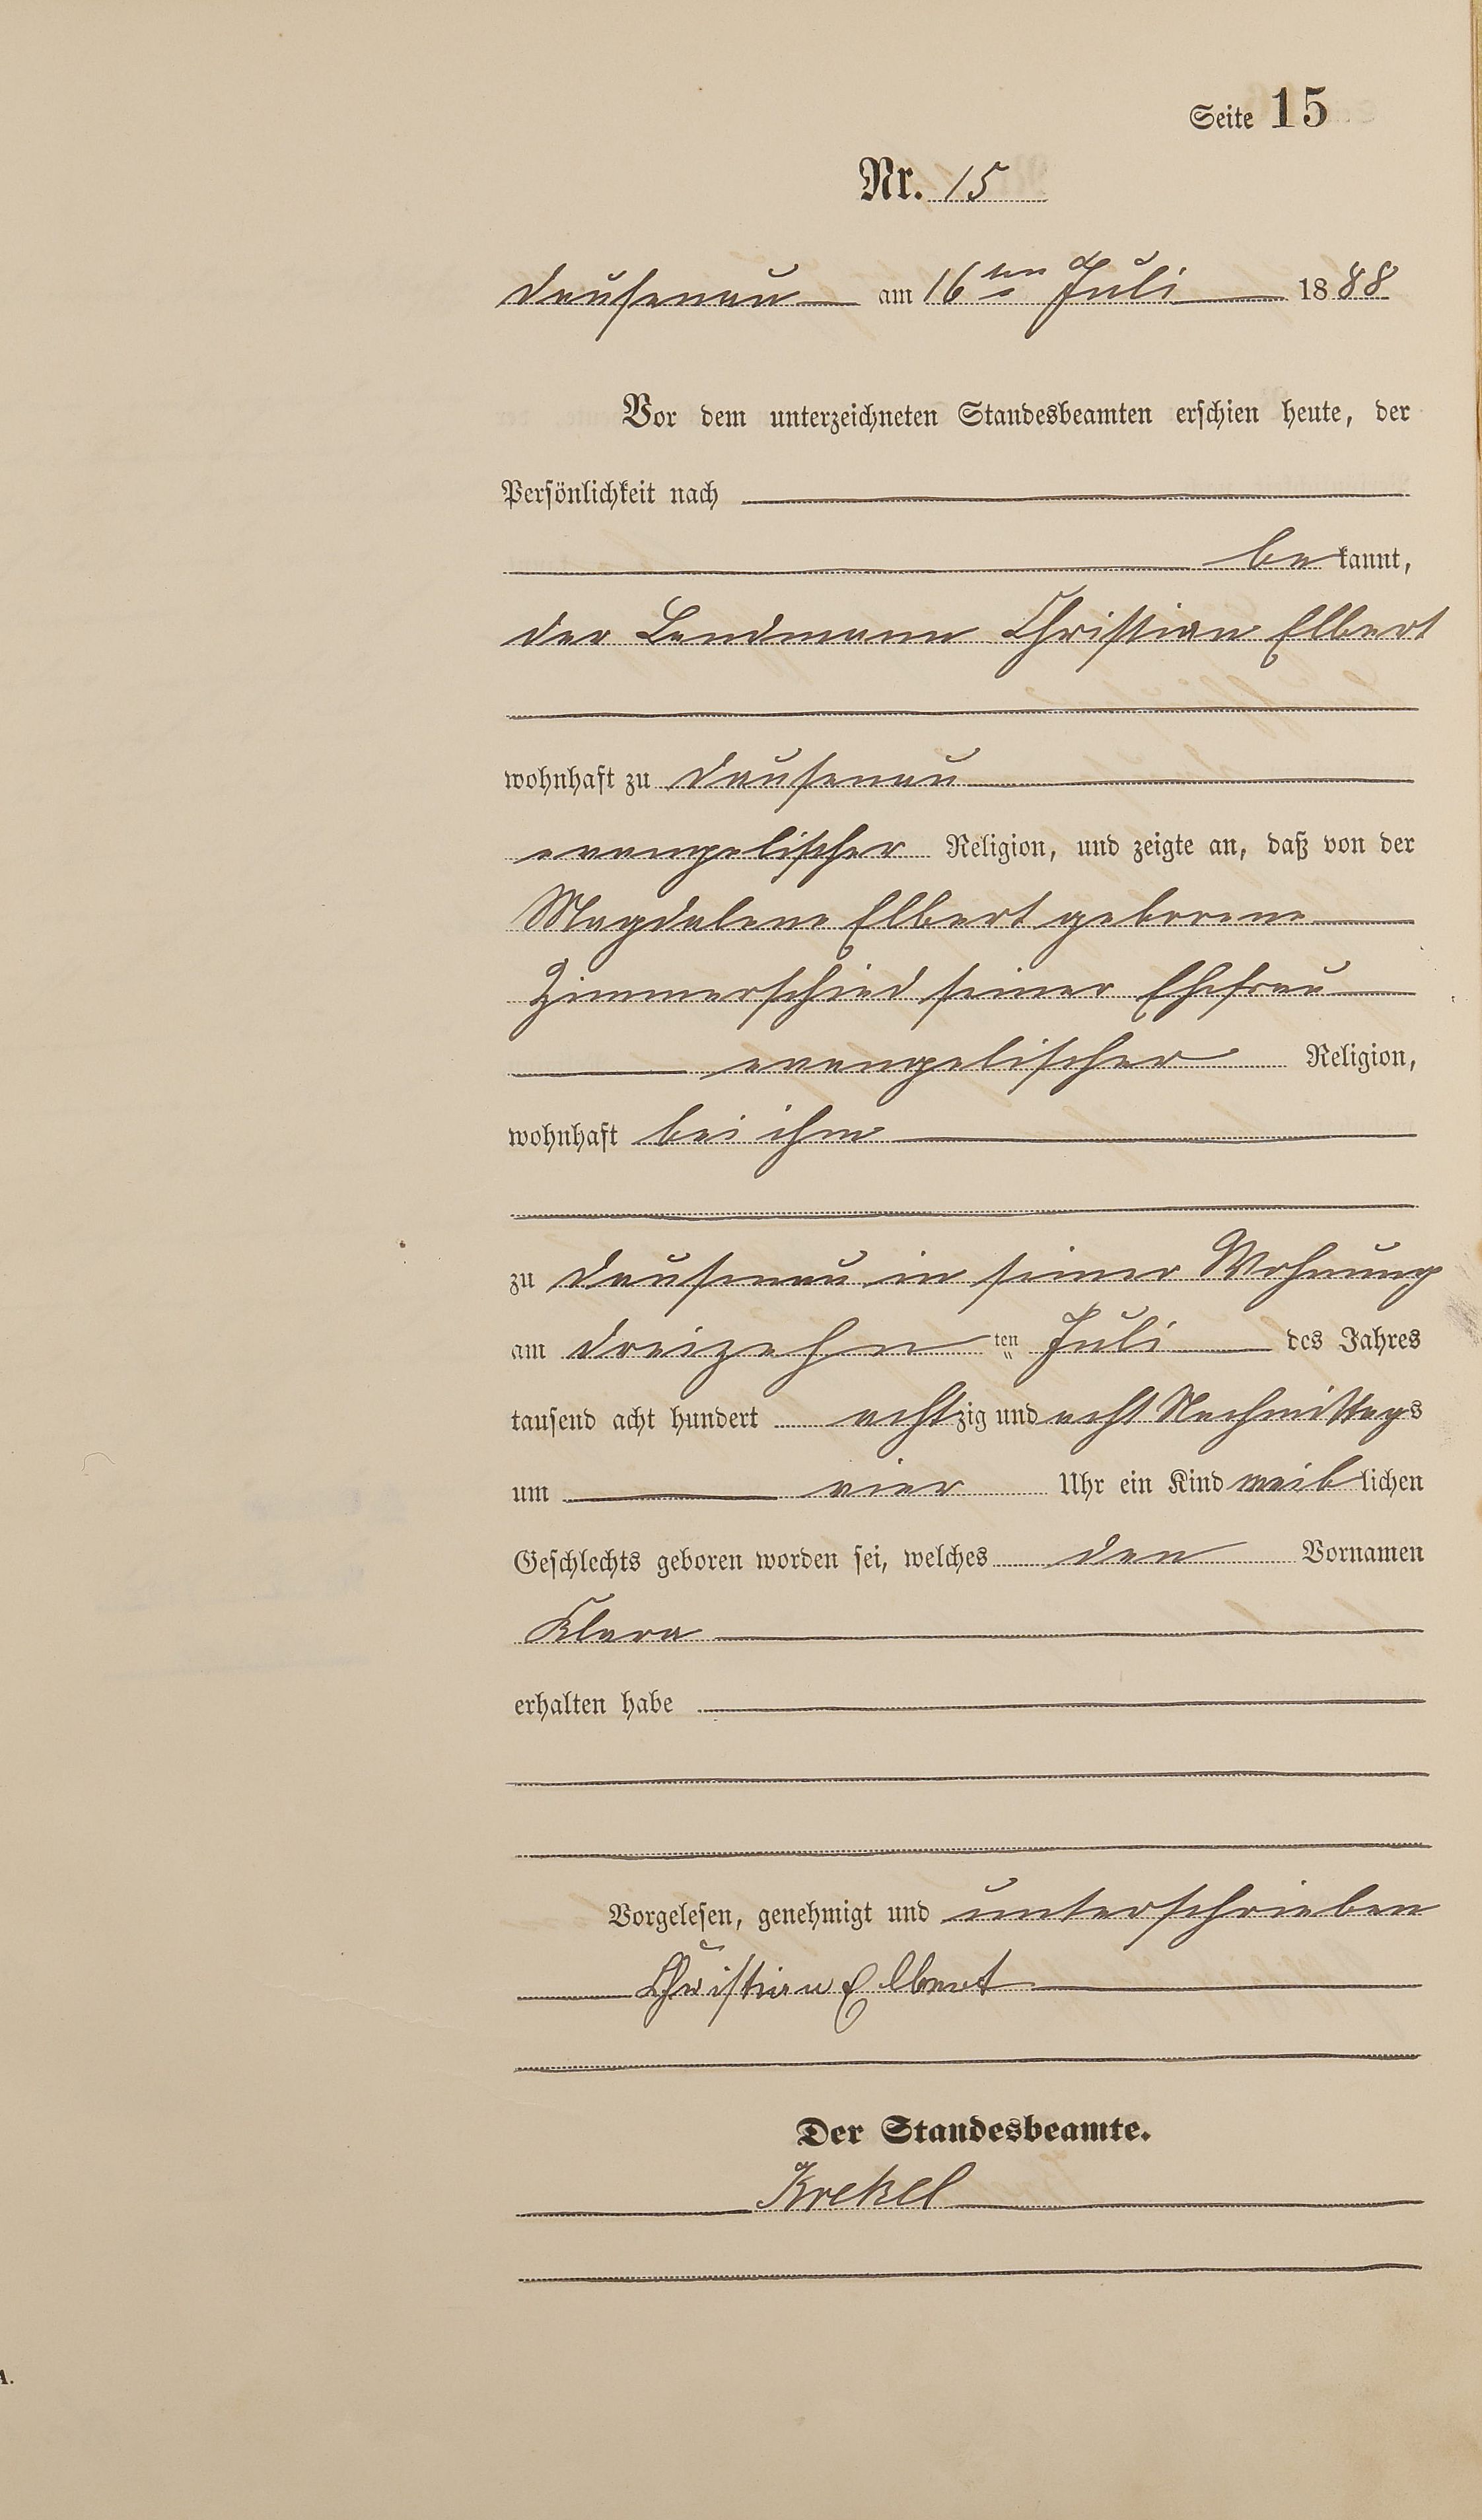 Seite 15
Nr. 15
Dausenau am 16ten Juli 1888
Vor dem unterzeichneten Standesbeamten erschien heute, der
Persönlichkeit nach
bekannt,
der Landmann Christian Elbert
wohnhaft zu Dausenau
evangelischer Religion, und zeigte an, daß von der
Magdalene Elbert geborene
Zimmerschied seiner Ehefrau
evangelischer Religion,
wohnhaft bei ihm
zu Dausenau in seiner Wohnung
am dreizehn ten Juli des Jahres
tausend acht hundert achtzig und acht Nachmittags
um vier Uhr ein Kind weiblichen
Geschlechts geboren worden sei, welches den Vornamen
Klara
erhalten habe
Vorgelesen, genehmigt und unterschrieben
Christian Elbert
Der Standesbeamte.
Krekel
A.